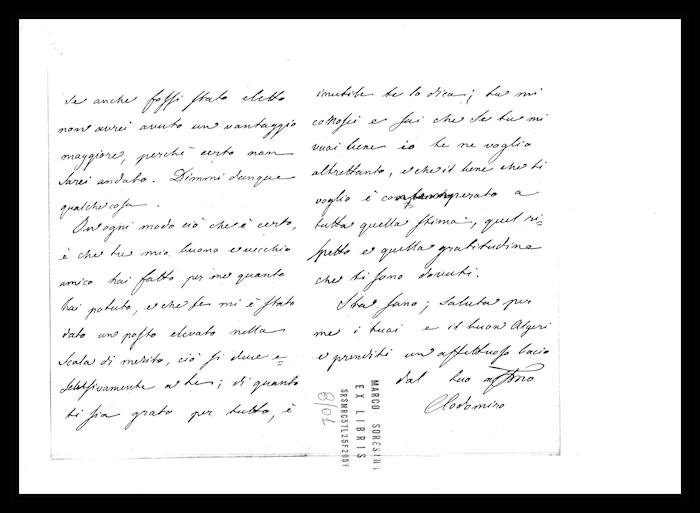 se anche fossi stato eletto
non avrei avuto un vantaggio
maggiore, perchè certo non
sarei andato. Dimmi dunque
qualche cosa.
In ogni modo ciò che è certo,
è che tu mio buono e vecchio
amico hai fatto per me quanto
hai potuto, e che se mi è stato
dato un posto elevato nella
scala di merito, ciò si deve e=
sclusivamente a te; di quanto
ti sia grato per tutto, è
inutile te lo dica; tu mi
conosci e sai che se tu mi
vuoi bene io te ne voglio
altrettanto, e che il bene che ti
voglio è contemperato a
tutta quella stima, quel ri=
spetto e quella gratitudine
che ti sono dovuti.
Sta sano; saluta per
me i tuoi e il buon Algeri
e prenditi un affettuoso bacio
dal tuo affmo
Clodomiro
MARCO SORESINI
EX LIBRIS
SRSMRC57L25F205Y
8/01